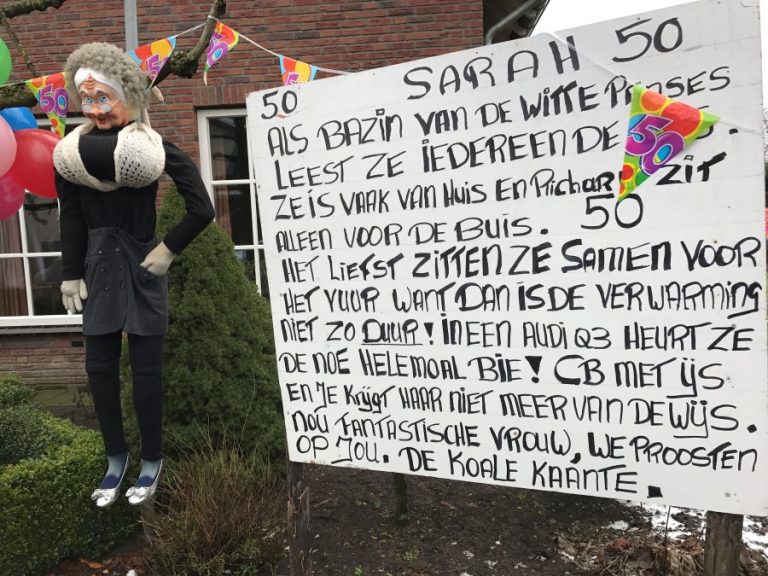 SARAH 50
50
ALS BAZIN VAN DE WITTE PRINSES
LEEST ZE IEDEREEN DE
ZE IS VAAK VAN HUIS EN RICHARD ZIT
ALLEEN VOOR DE BUIS. 50
HET LIEFST ZITTEN ZE SAMEN VOOR
HET VUUR WANT DAN IS DE VERWARMING
NIET ZO DUUR! IN EEN AUDI Q3 HEURT ZE
DE NOE HELEMOAL BIE! CB MET IJS
EN JE KRIJGT HAAR NIET MEER VAN DE WIJS.
NOU FANTASTISCHE VROUW, WE PROOSTEN
OP JOU. DE KOALE KAANTE.
50
50